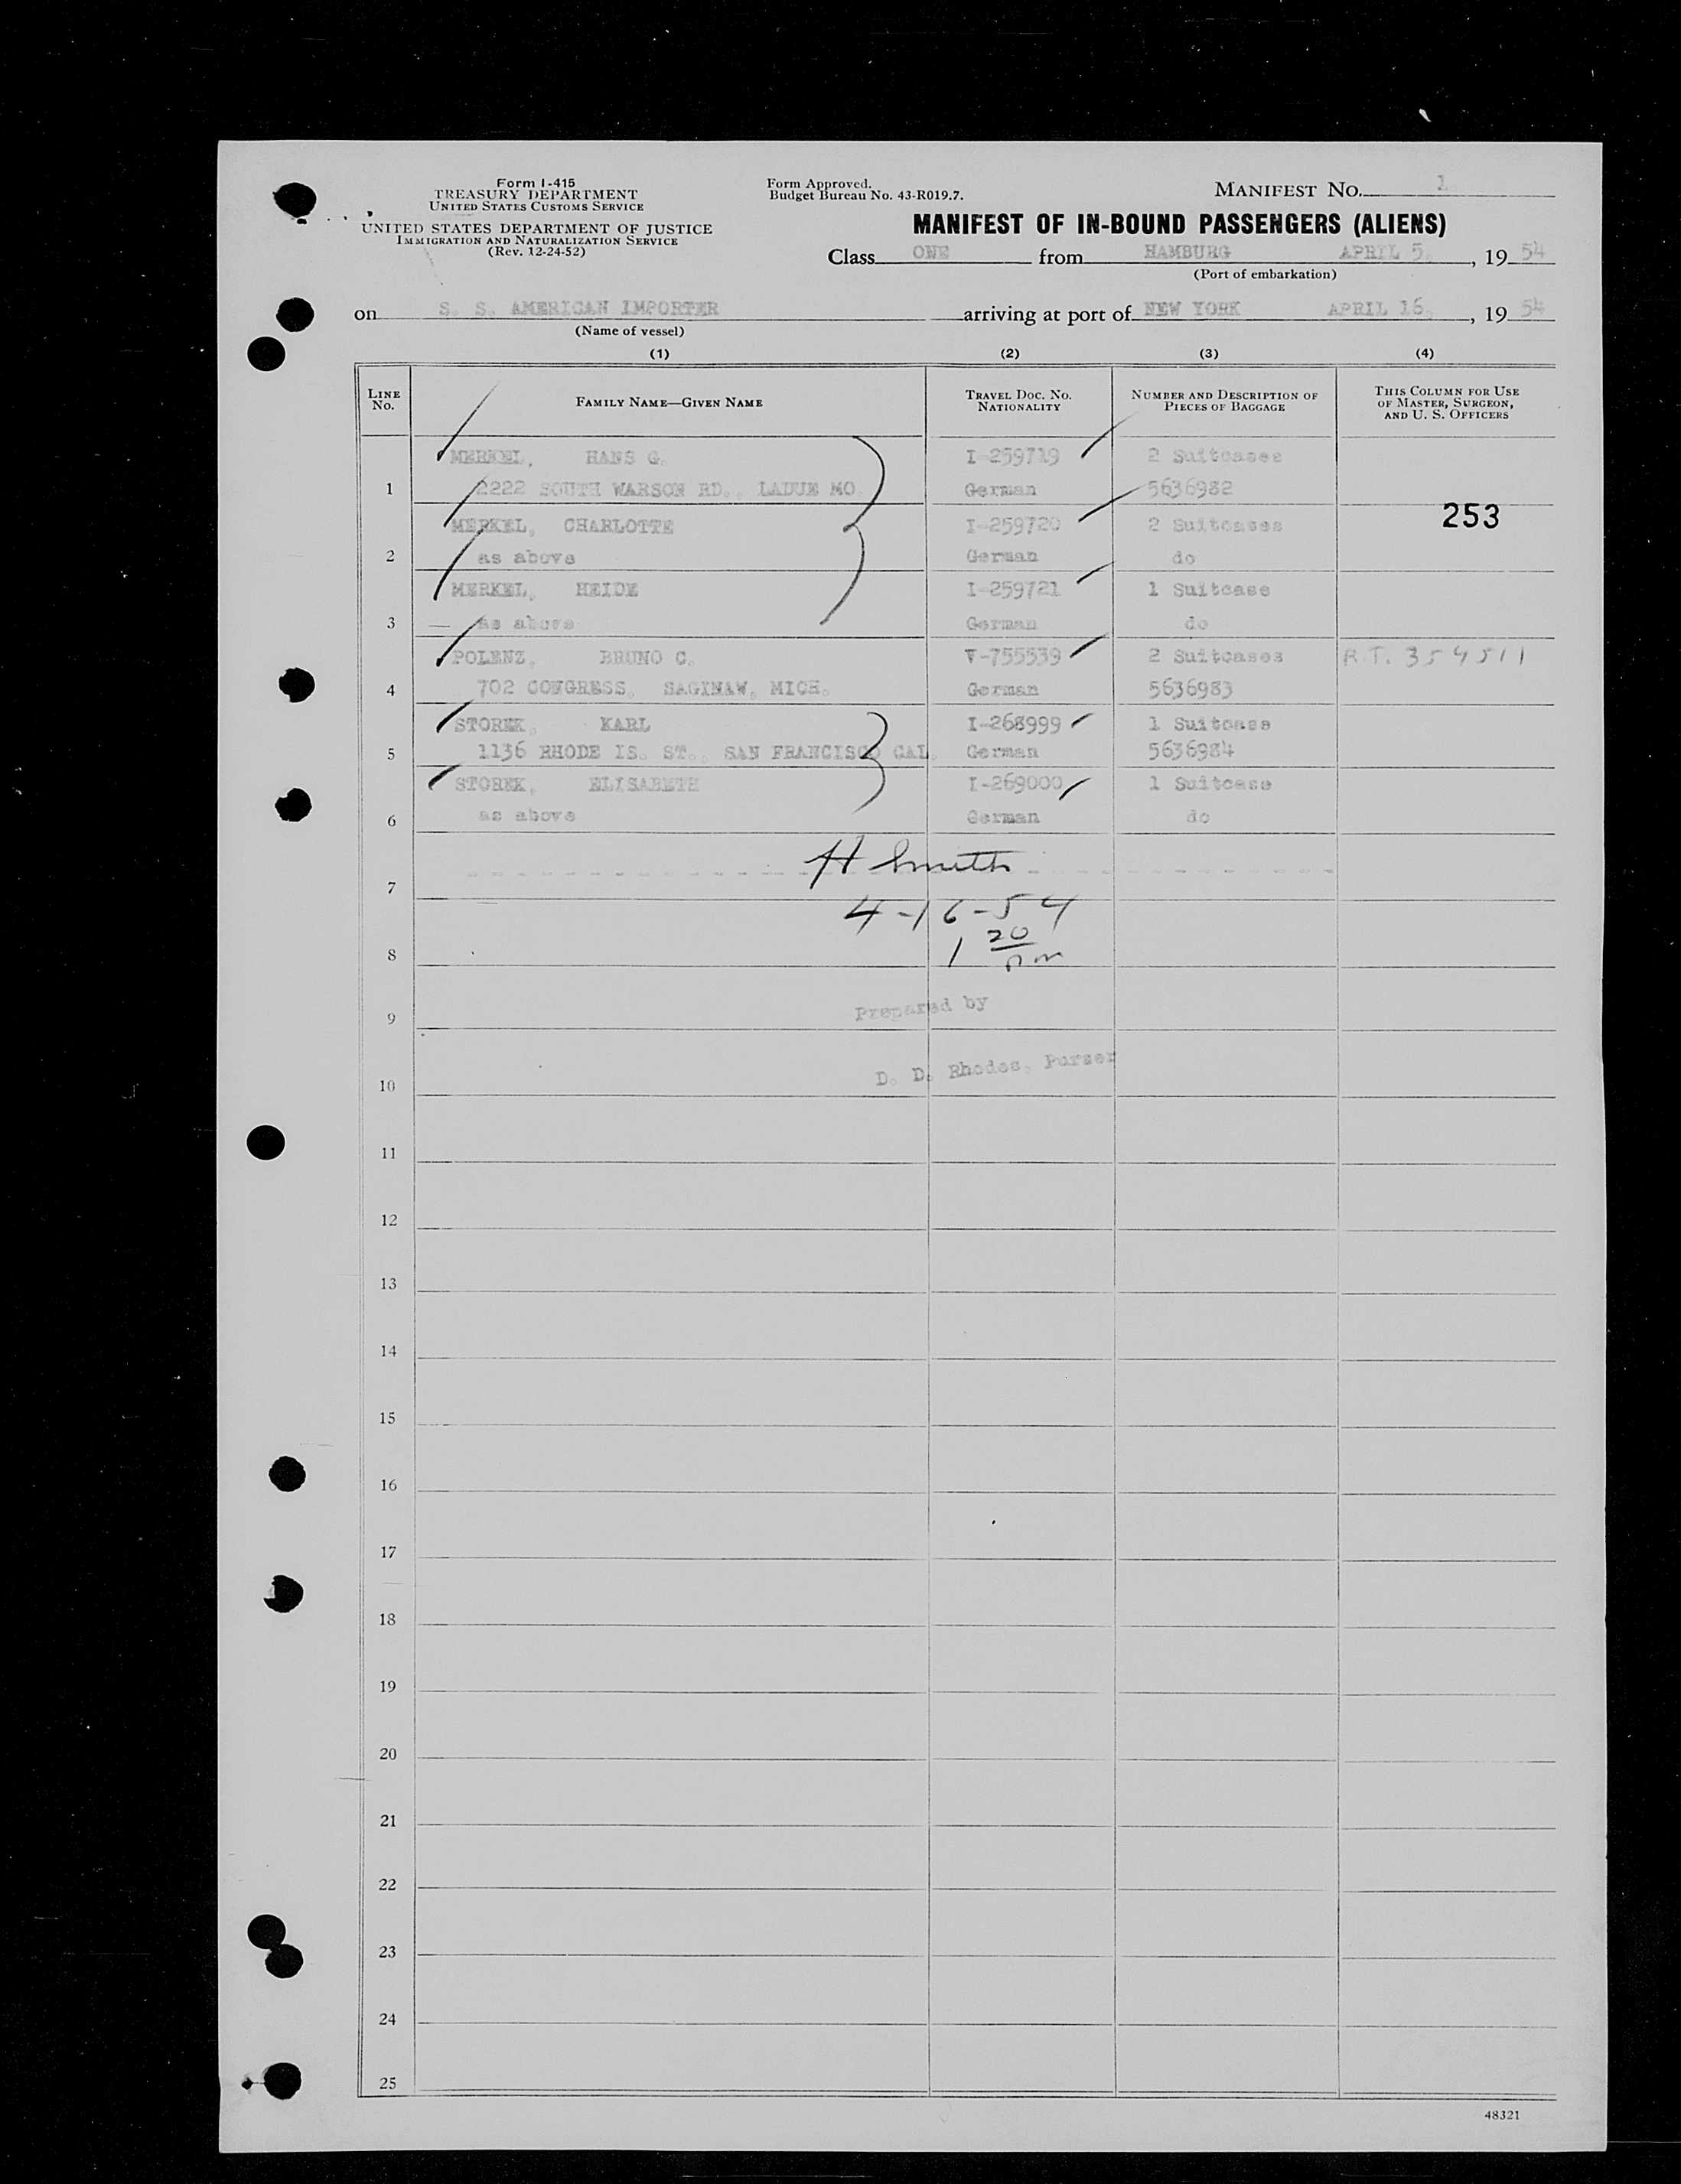 Form I-415
TREASURY DEPARTMENT
UNITED STATES CUSTOMS SERVICE
UNITED STATES DEPARTMENT OF JUSTICE
IMMIGRATION AND NATURALIZATION SERVICE
(Rev. 12-24-52)
Form Approved.
Budget Bureau No. 43-R019.7.
MANIFEST No. 1
MANIFEST OF IN-BOUND PASSENGERS (ALIENS)
Class ONE from HAMBURG APRIL 5, 19 54
(Port of embarkation)
on S. S. AMERICAN IMPORTER arriving at port of NEW YORK APRIL 16, 19 54
(Name of vessel)
(1) (2) (3) (4)
LINE No. FAMILY NAME—GIVEN NAME TRAVEL DOC. No. NATIONALITY NUMBER AND DESCRIPTION OF PIECES OF BAGGAGE THIS COLUMN FOR USE OF MASTER, SURGEON, AND U. S. OFFICERS
MERKEL, HANS G. I-259719 2 Suitcases
1 2222 SOUTH WARSON RD., LADUE MO. German 5636982
MERKEL, CHARLOTTE I-259720 2 Suitcases 253
2 as above German do
MERKEL, HEIDE I-259721 1 Suitcase
3 as above German do
POLENZ, BRUNO C. V-755539 2 Suitcases R.T. 354511
4 702 CONGRESS, SAGINAW, MICH. German 5636983
STOREK, KARL I-268999 1 Suitcase
5 1136 RHODE IS. ST., SAN FRANCISCO CAL. German 5636984
STOREK, ELISABETH I-269000 1 Suitcase
6 as above German do
H Smith
7
4-16-54
1 20 pm
8
Prepared by
9
D. D. Rhodes, Purser
10
11
12
13
14
15
16
17
18
19
20
21
22
23
24
25
48321